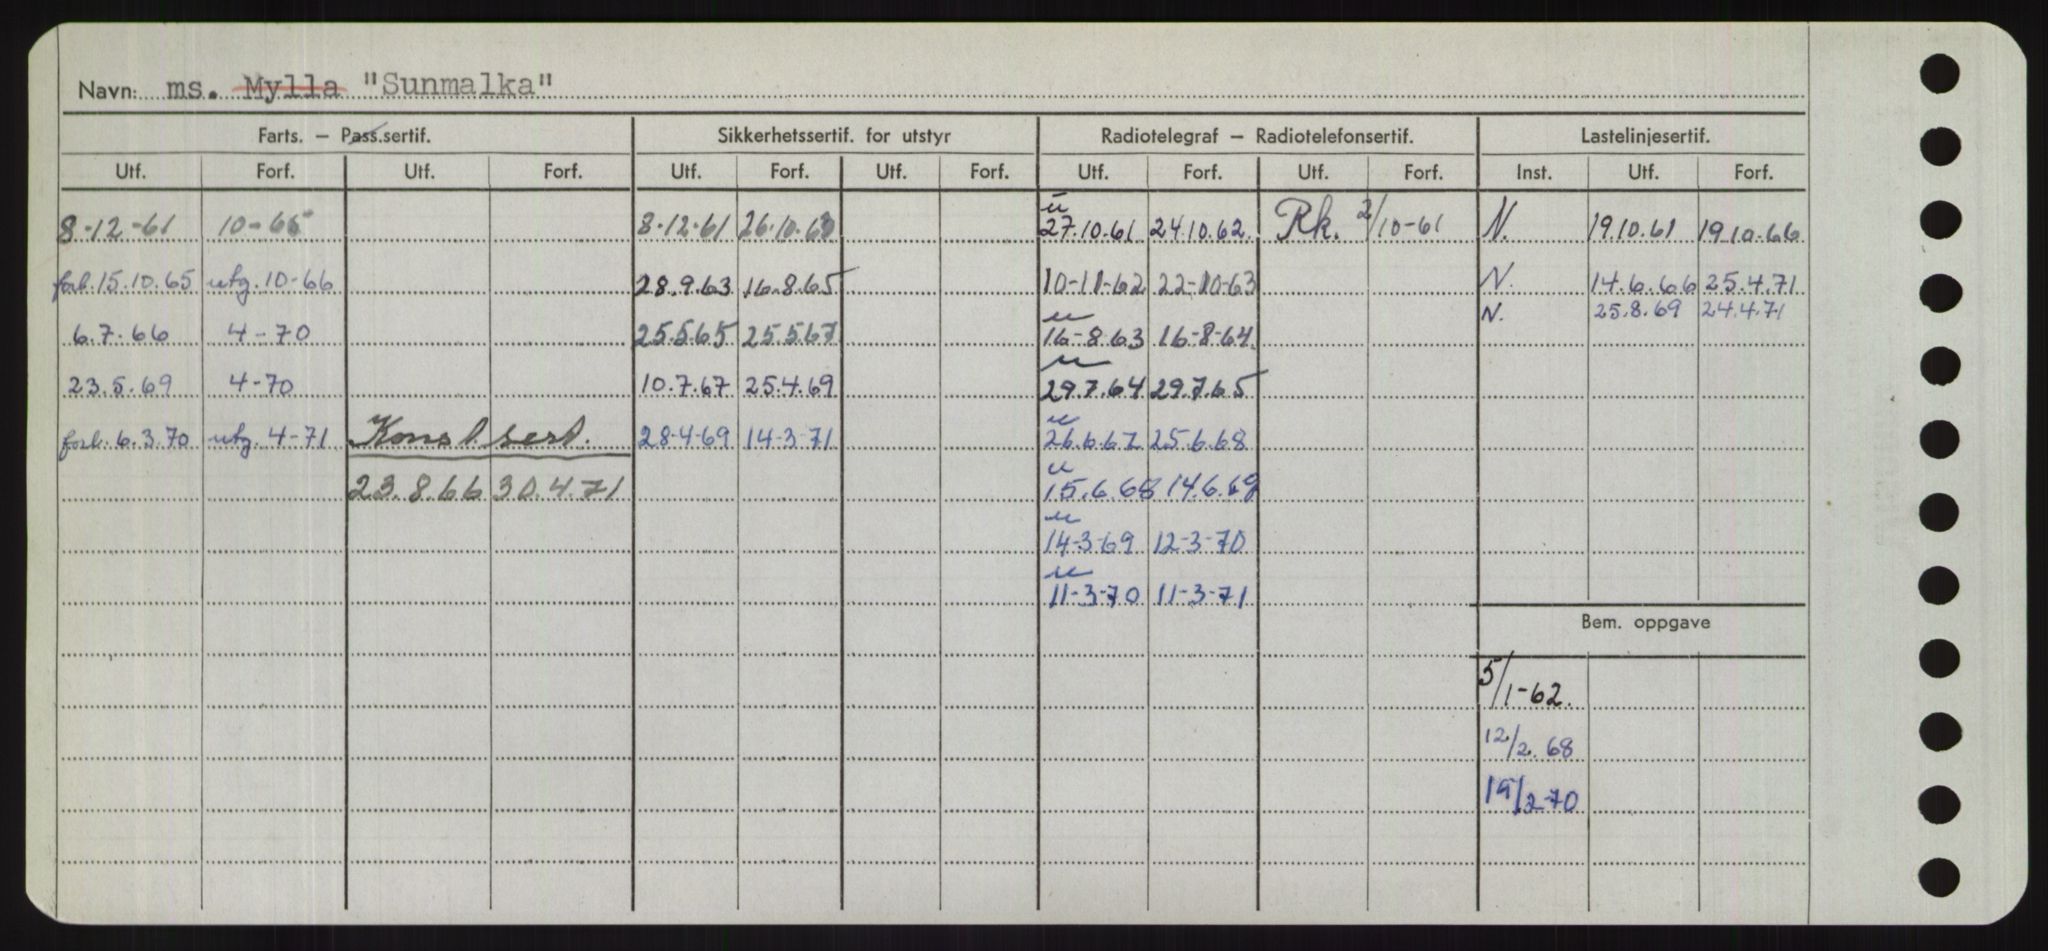 Navn: ms. Mylla "Sunmalka"
Farts. — Pass.sertif. Sikkerhetssertif. for utstyr Radiotelegraf — Radiotelefonsertif. Lastelinjesertif.
Utf. Forf. Utf. Forf. Utf. Forf. Utf. Forf. Utf. Forf. Utf. Forf. Inst. Utf. Forf.
u
8-12-61 10-65 8-12-61 26.10.63 27.10.61 24.10.62. Rk. 2/10-61 N. 19.10.61 19.10.66
forl. 15.10.65 utg. 10-66 28.9.63 16.8.65 10-11-62 22-10-63 N. 14.6.66 25.4.71
N. 25.8.69 24.4.71
u
6.7.66 4-70 25.5.65 25.5.67 16-8.63 16-8-64
u
23.5.69 4-70 10.7.67 25.4.69 29.7.64 29.7.65
u
forl. 6.3.70 utg. 4-71 Konst sert. 28-4-69 14-3-71 26.6.67 25.6.68
u
23.8.66 30.4.71 15.6.68 14.6.69
u
14-3-69 12-3-70
u
11-3-70 11-3-71
Bem. oppgave
5/1-62.
12/2.68
19/2-70